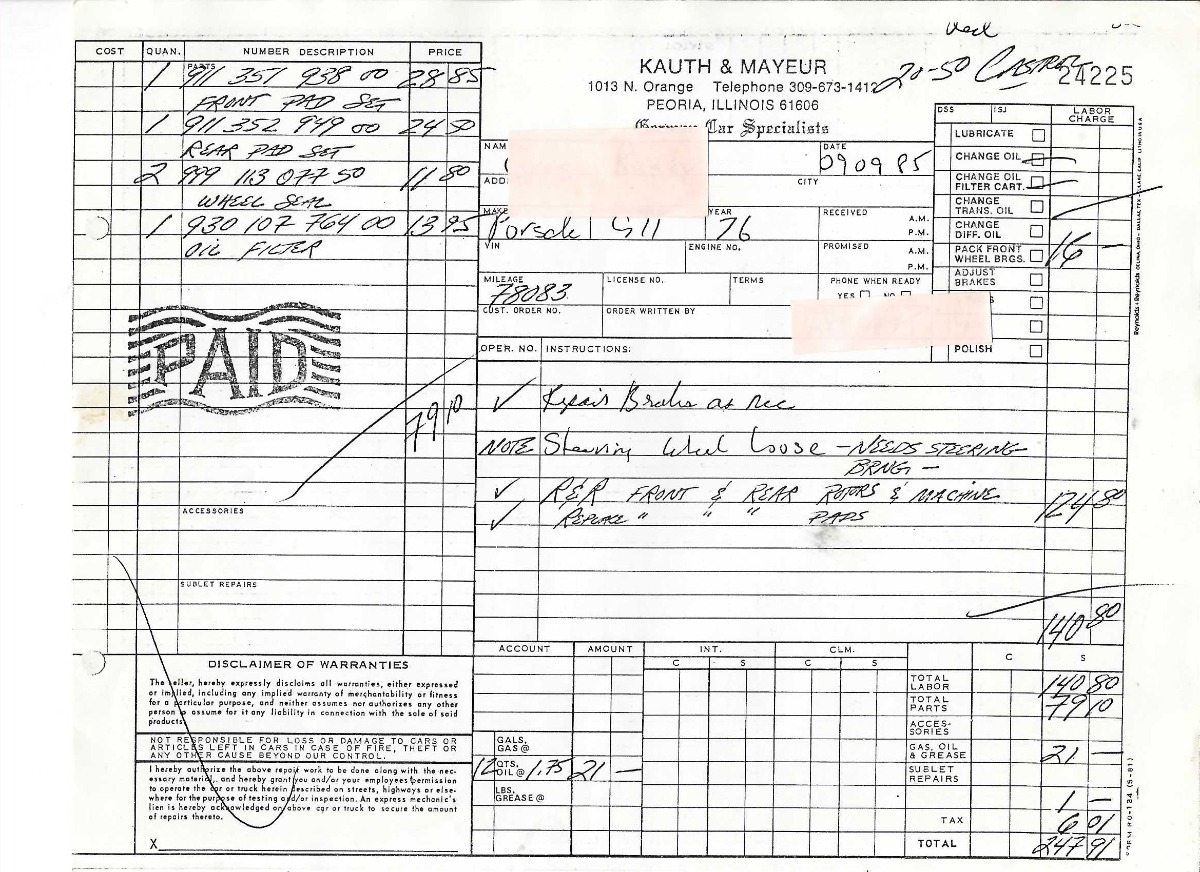 Used
20-50 CASTROL
KAUTH & MAYEUR
24225
1013 N. Orange Telephone 309-673-1412
PEORIA, ILLINOIS 61606
German Car Specialists
COST QUAN. NUMBER DESCRIPTION PRICE
PARTS
1 911 351 938 00 28 85
FRONT PAD SET
1 911 352 949 00 24 50
REAR PAD SET
2 999 113 077 50 11 80
WHEEL SEAL
1 930 107 764 00 13 95
OIL FILTER
PAID
79 10
ACCESSORIES
SUBLET REPAIRS
NAM
DATE
090985
ADD
CITY
MAKE
Porsche 911
YEAR
76
RECEIVED
A.M.
P.M.
VIN
ENGINE NO.
PROMISED
A.M.
P.M.
MILEAGE
78083
LICENSE NO.
TERMS
PHONE WHEN READY
YES NO
CUST. ORDER NO.
ORDER WRITTEN BY
DSS ISJ LABOR CHARGE
LUBRICATE
CHANGE OIL
CHANGE OIL FILTER CART.
CHANGE TRANS. OIL
CHANGE DIFF. OIL
PACK FRONT WHEEL BRGS. 16 —
ADJUST BRAKES
S
POLISH
OPER. NO. INSTRUCTIONS:
✓ Repair Brakes as nec
NOTE Steering Wheel Loose - NEEDS STEERING
BRNG. -
✓ R&R FRONT & REAR ROTORS & MACHINE 124 80
✓ REPLACE " " " PADS
140 80
ACCOUNT AMOUNT INT. CLM.
C S C S C S
TOTAL LABOR 140 80
TOTAL PARTS 79 10
ACCES-
SORIES
GALS. GAS @
GAS, OIL & GREASE 21 —
12 QTS. OIL @ 1.75 21 —
SUBLET REPAIRS
LBS. GREASE @
1 —
TAX 6 01
TOTAL 247 91
DISCLAIMER OF WARRANTIES
The seller, hereby expressly disclaims all warranties, either expressed
or implied, including any implied warranty of merchantability or fitness
for a particular purpose, and neither assumes nor authorizes any other
person to assume for it any liability in connection with the sale of said
products.
NOT RESPONSIBLE FOR LOSS OR DAMAGE TO CARS OR
ARTICLES LEFT IN CARS IN CASE OF FIRE, THEFT OR
ANY OTHER CAUSE BEYOND OUR CONTROL.
I hereby authorize the above repair work to be done along with the nec-
essary material, and hereby grant you and/or your employees permission
to operate the car or truck herein described on streets, highways or else-
where for the purpose of testing and/or inspection. An express mechanic's
lien is hereby acknowledged on above car or truck to secure the amount
of repairs thereto.
X
Reynolds + Reynolds
FORM RO-134 (5-81)